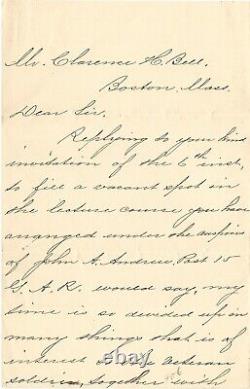 Mr. Clarence H. Bell
Boston, Mass.
Dear Sir.
Replying to your kind
invitation of the 6th inst,
to fill a vacant spot in
the lecture course you have
arranged under the auspices
of John A. Andrew, Post 15
G. A. R. would say, my
time is so divided up in
many things that is of
interest to the veteran
soldier, together with